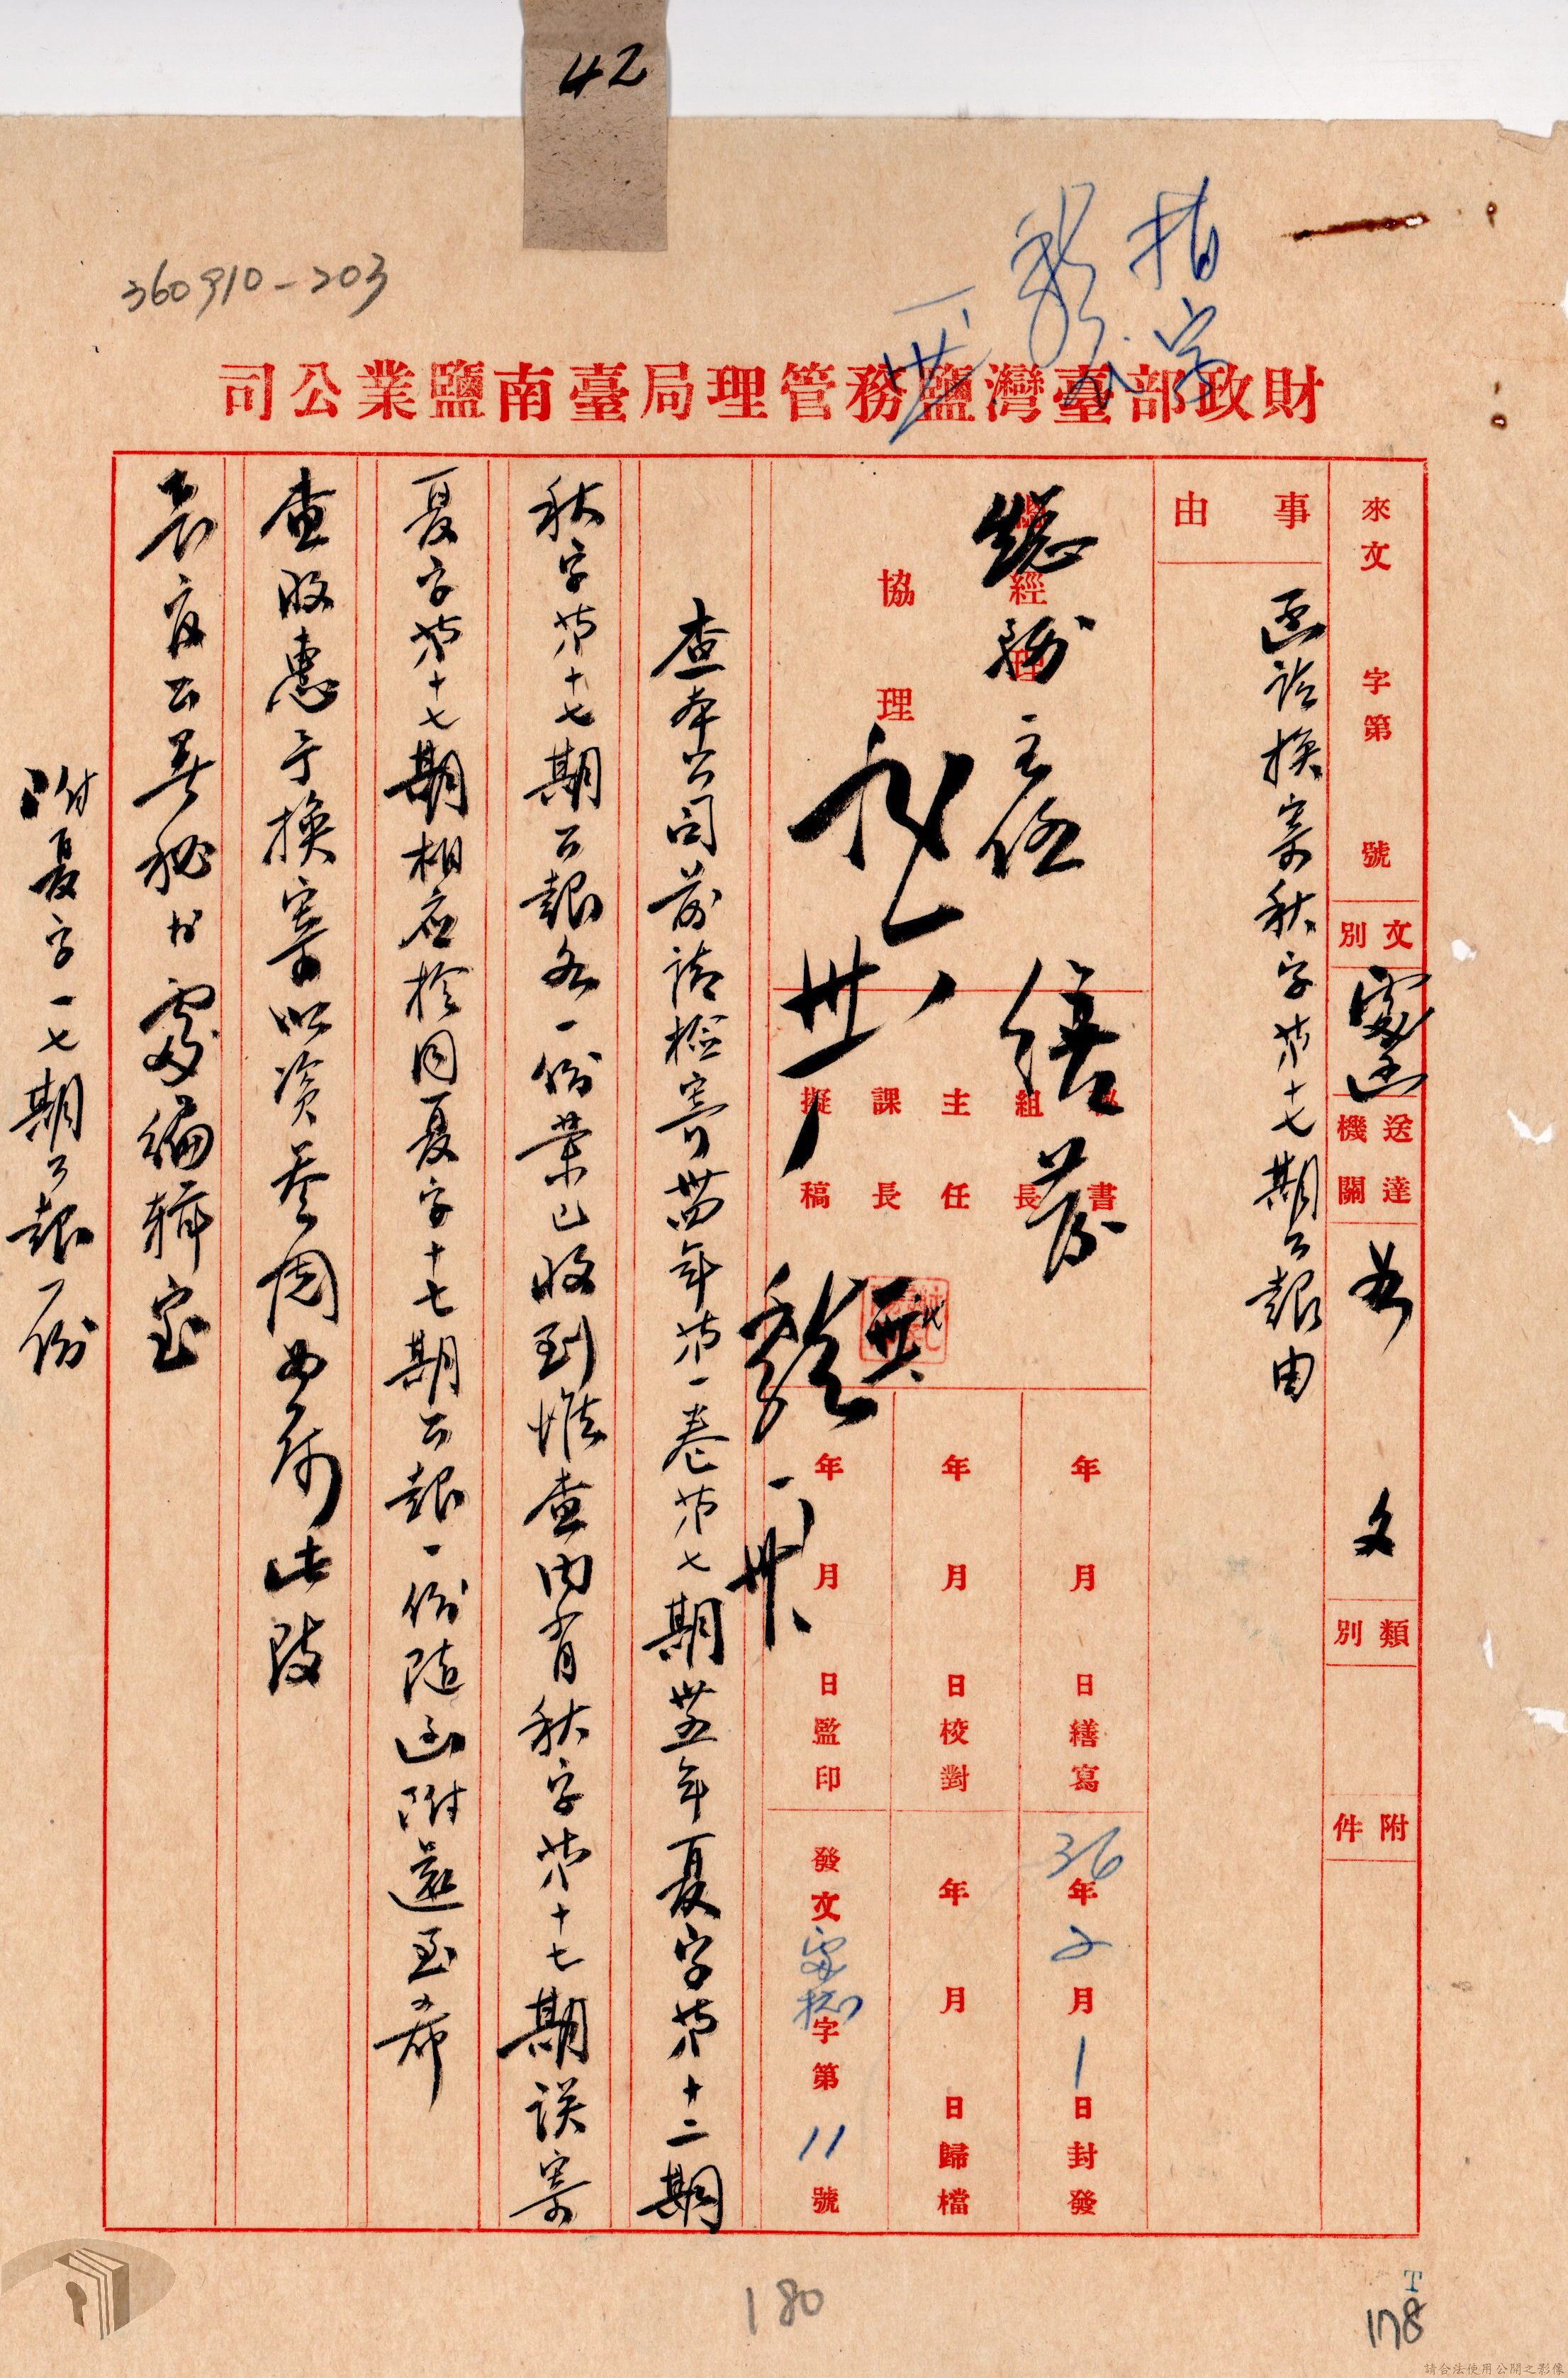 42
360910-203
財政部臺灣鹽務管理局臺南鹽業公司
來文 字第 號
文別
送達機關
類別
附件
事由
函請換寄秋字第十七期公報由
總經理
協理
秘書
組長
主任
課長
擬稿
繕發
年 月 日繕寫
年 月 日校對
年 月 日監印
36年2月1日封發
年 月 日歸檔
發文 字第11號
查本公司前請檢寄卅四年第一卷第七期卅五年夏字第十二期
秋字第十七期公報各一份業已收到惟查內有秋字第十七期誤寄
夏字第十七期相應檢同夏字十七期公報一份隨函附還至希
查收惠予換寄以資參閱為荷此致
長官公署秘書處編輯室
附夏字一七期公報一份
180
T
178
請合法使用公開之影像